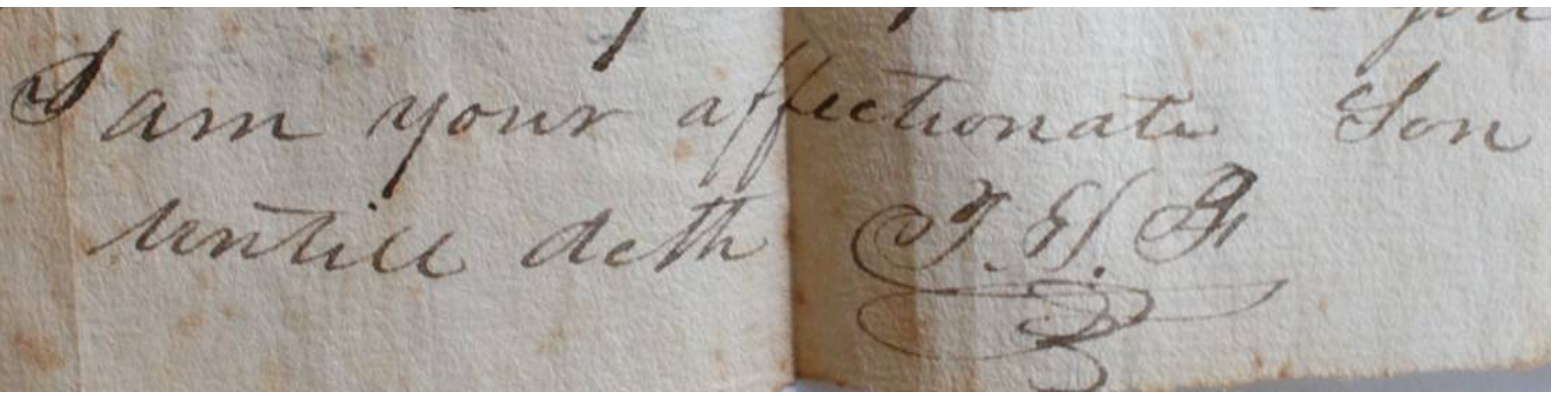 you
I am your affectionate Son
untill deth